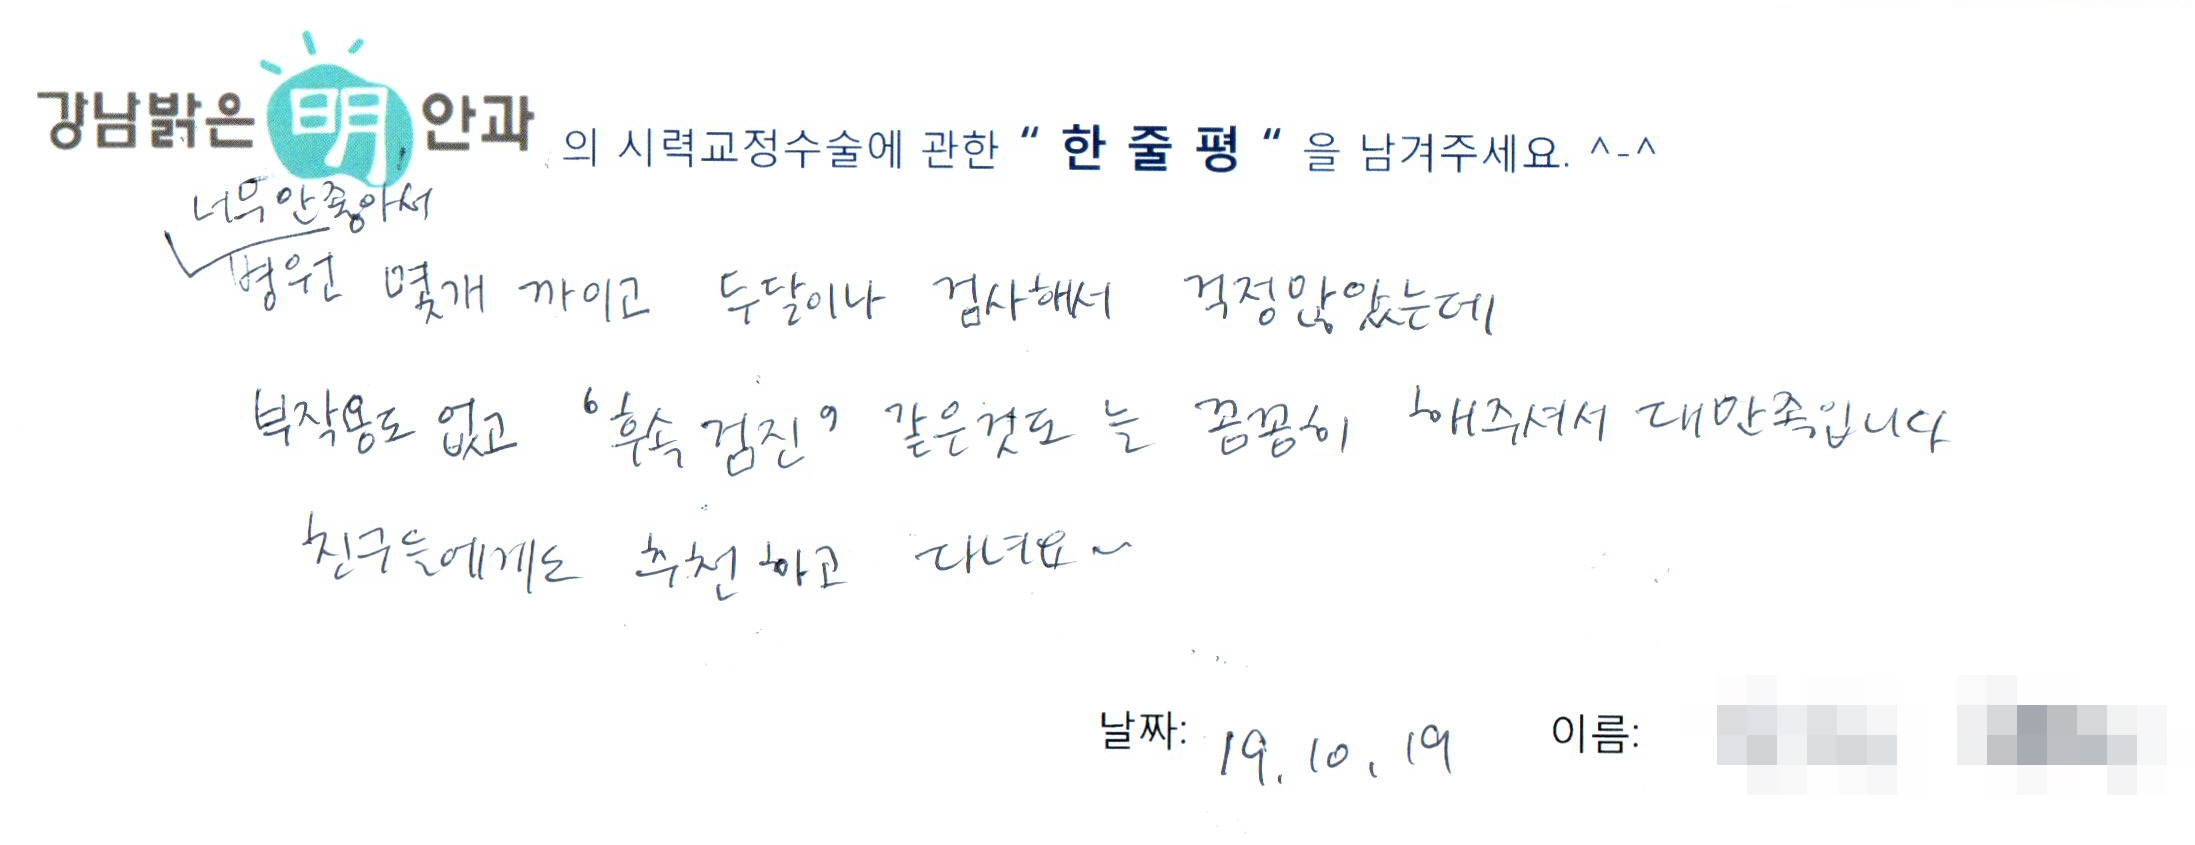 강남밝은明안과 의 시력교정수술에 관한 “ 한 줄 평 “ 을 남겨주세요. ^-^
너무 안좋아서
병원 몇개 까이고 두달이나 검사해서 걱정많았는데
부작용도 없고 ‘후속 검진’ 같은것도 늘 꼼꼼히 해주셔서 대만족입니다
친구들에게도 추천하고 다녀요~
날짜: 19. 10. 19 이름: